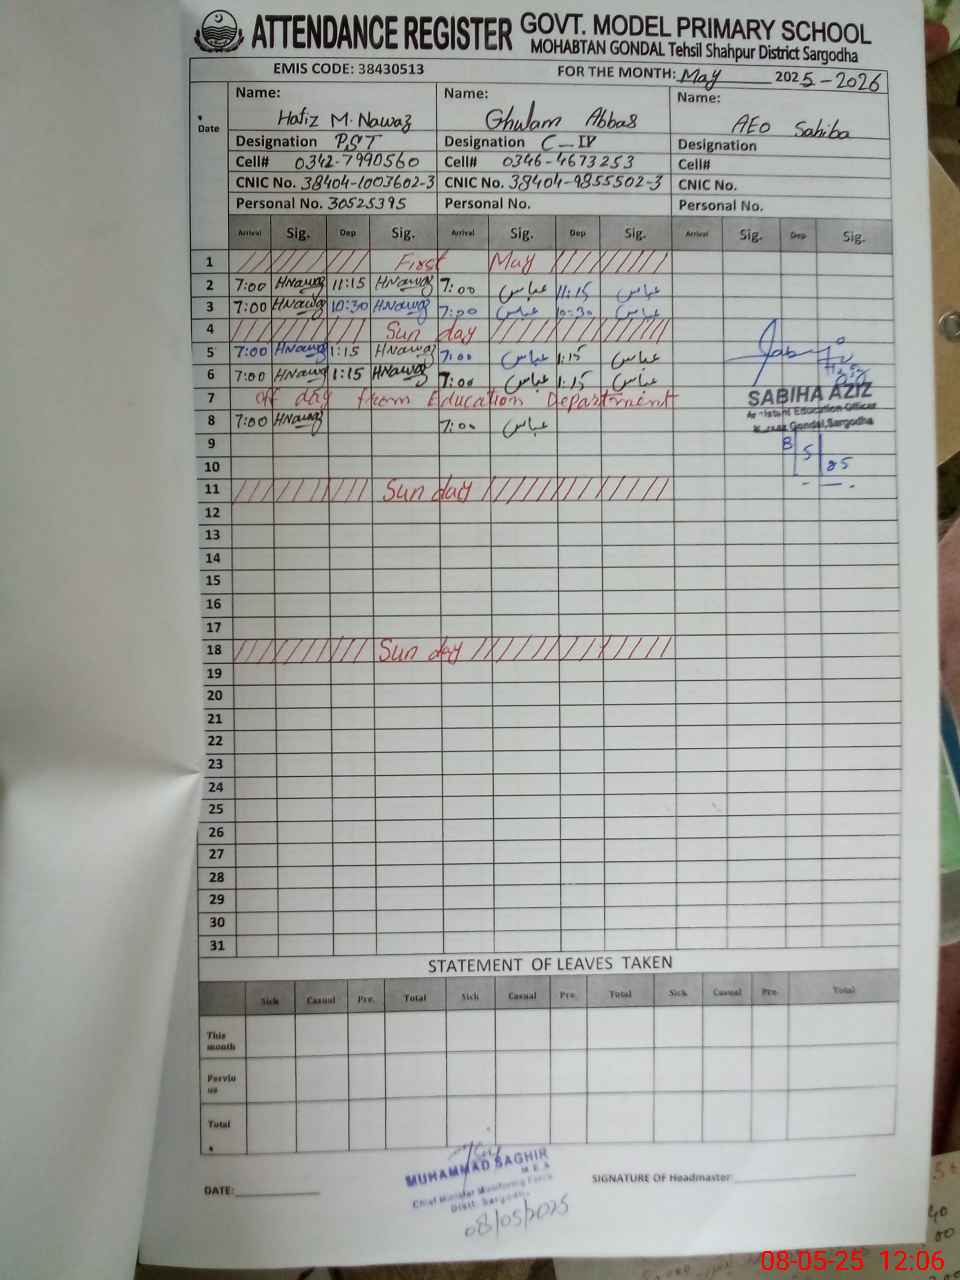 ATTENDANCE REGISTER GOVT. MODEL PRIMARY SCHOOL
MOHABTAN GONDAL Tehsil Shahpur District Sargodha
EMIS CODE: 38430513 FOR THE MONTH: May 2025-2026
Date Name: Name: Name:
Hafiz M. Nawaz Ghulam Abbas AEO Sahiba
Designation PST Designation C-IV Designation
Cell# 0342-7990560 Cell# 0346-4673253 Cell#
CNIC No. 38404-1003602-3 CNIC No. 38404-9855502-3 CNIC No.
Personal No. 30525395 Personal No. Personal No.
Arrival Sig. Dep Sig. Arrival Sig. Dep Sig. Arrival Sig. Dep Sig.
1 First May
2 7:00 HNawaz 11:15 HNawaz 7:00 عباس 11:15 عباس
3 7:00 HNawaz 10:30 HNawaz 7:00 عباس 10:30 عباس
4 Sunday
5 7:00 HNawaz 1:15 HNawaz 7:00 عباس 1:15 عباس
6 7:00 HNawaz 1:15 HNawaz 7:00 عباس 1:15 عباس
7 off day from Education Department
SABIHA AZIZ
Assistant Education Officer
Gondal, Sargodha
8 7:00 HNawaz 7:00 عباس
8 5 25
9
10
11 Sunday
12
13
14
15
16
17
18 Sunday
19
20
21
22
23
24
25
26
27
28
29
30
31
STATEMENT OF LEAVES TAKEN
Sick Casual Pre. Total Sick Casual Pre. Total Sick Casual Pre. Total
This month
Pervio us
Total
MUHAMMAD SAGHIR
M.E.A
Chief Minister Monitoring Force
Distt. Sargodha
08/05/2025
DATE: SIGNATURE OF Headmaster:
08-05-25 12:06